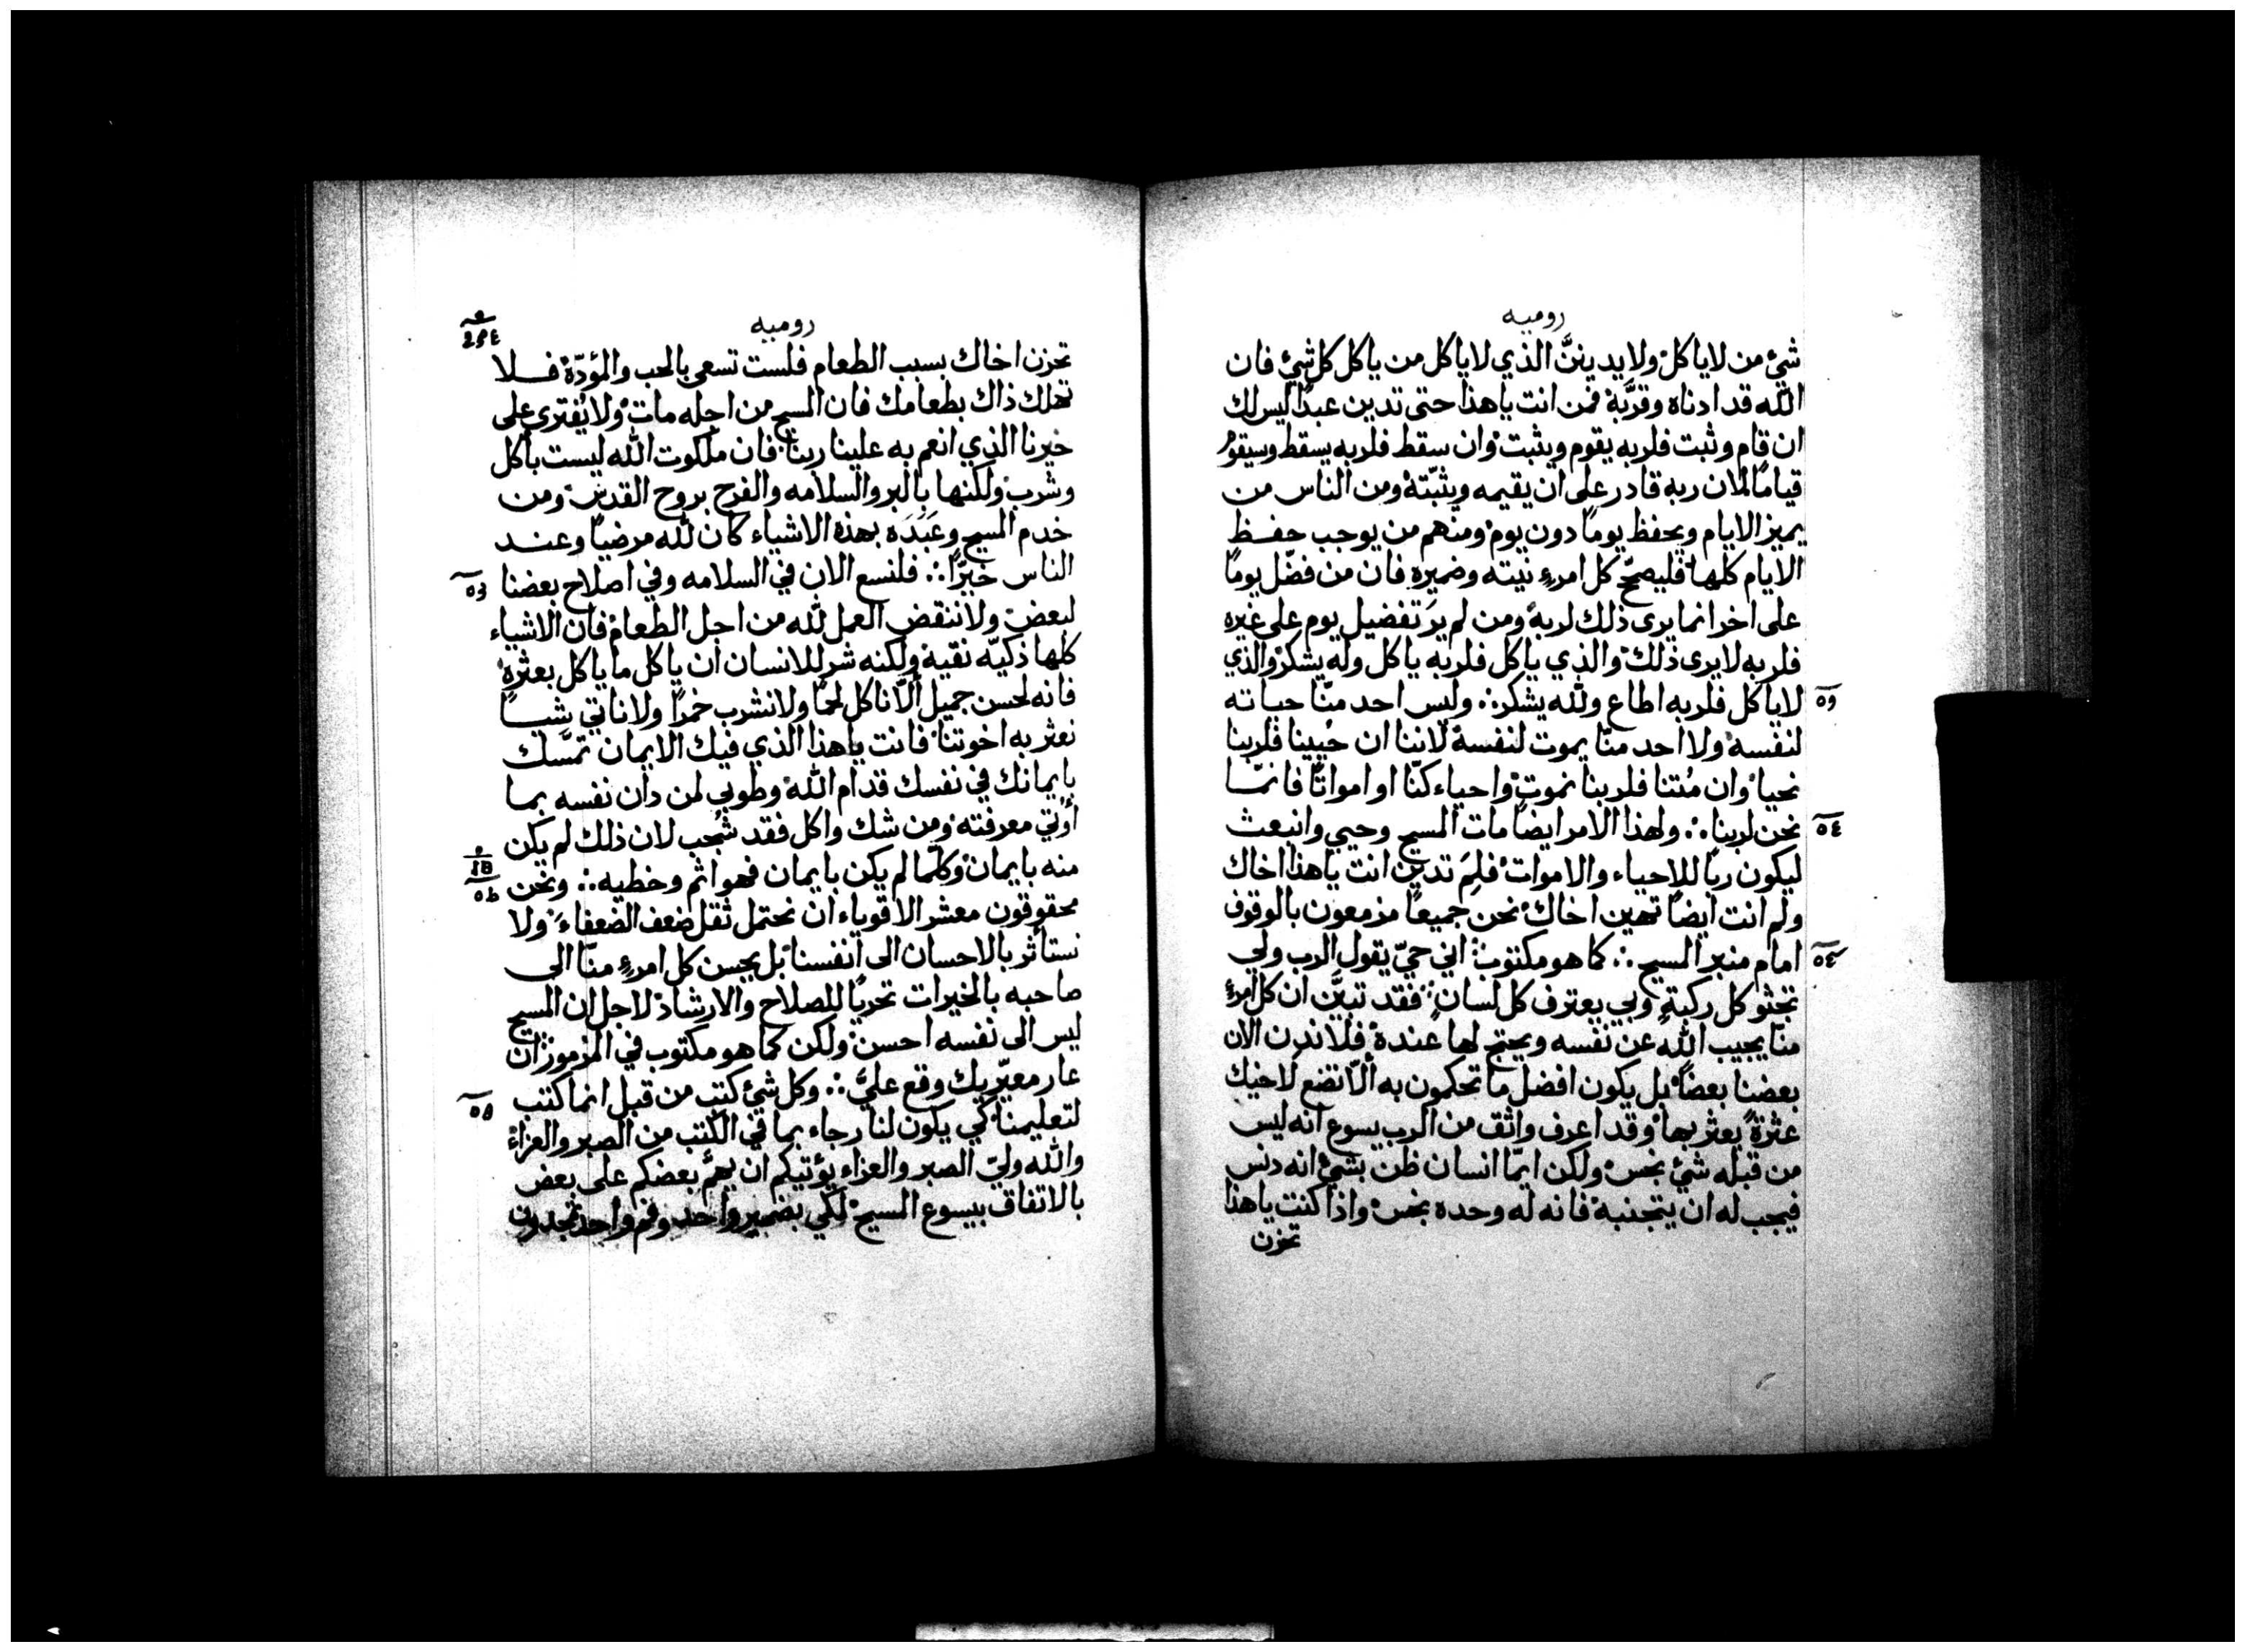 روميه
شيء من لا ياكل ولا يدينن الذي لا ياكل من ياكل كل شيء فان
الله قد ادناه وقربه فمن انت ياهذا حتى تدين عبدا ليس لك
ان قام وثبت فلربه يقوم ويثبت وان سقط فلربه يسقط وسيقوم
قياما لان ربه قادر على ان يقيمه ويثبته ومن الناس من
يميز الايام ويحفظ يوما دون يوم ومنهم من يوجب حفظ
الايام كلها فليصح كل امرء نيته وضميره فان من فضّل يوما
على اخر انما يرى ذلك لربه ومن لم يَر تفضيل يوم على غيره
فلربه لا يرى ذلك والذي ياكل فلربه ياكل وله يشكر والذي
لا ياكل فلربه اطاع ولله يشكر ∴ وليس احد منّا حياته
لنفسه ولا احد منّا يموت لنفسه لاننا ان حُيينا فلربنا
نحيا وان مُتنا فلربنا نموت واحياء كنّا او امواتا فانمّا
نحن لربنا ∴ ولهذا الامر ايضا مات المسيح وحيي وانبعث
ليكون ربا للاحياء والاموات فلِمَ تدين انت ياهذا اخاك
ولم انت ايضا تهين اخاك نحن جميعا مزمعون بالوقوف
امام منبر المسيح ∴ كما هو مكتوب اني حيّ يقول الرب ولي
تجثو كل ركبة وبي يعترف كل لسان فقد تبيَّن ان كل امرء
منا يجيب الله عن نفسه ويحتج لها عنده فلا ندن الان
بعضنا بعضا بل يكون افضل ما تحكمون به ألّا تضع لاخيك
عثرة يعثر بها وقد اعرف واثق من الرب يسوع انه ليس
من قبله شيء نجس ولكن ايمّا انسان ظن بشيء انه دنس
فيجب له ان يتجنبه فانه له وحده نجس واذا كنت ياهذا
تحزن
روميه
تحزن اخاك بسبب الطعام فلست تسعى بالحب والمؤدّة فلا
تهلك ذاك بطعامك فان المسيح من اجله مات ولا يُفترى على
خيرنا الذي انعم به علينا ربنا فان ملكوت الله ليست بأكل
وشرب ولكنها بالبر والسلامه والفرح بروح القدس ومن
خدم المسيح وعَبَدَه بهذه الاشياء كان لله مرضيا وعند
الناس خيرًا ∴ فلنسع الان في السلامه وفي اصلاح بعضنا
لبعض ولا ننقض العمل لله من اجل الطعام فان الاشياء
كلها ذكيّه نقية ولكنه شر للانسان ان ياكل ما ياكل بعثرة
فانه لحسن جميل ألّا ناكل لحما ولا نشرب خمرا ولا ناتي شيا
نعثر به اخوتنا فانت ياهذا الذي فيك الايمان تمسَّك
بايمانك في نفسك قدام الله وطوبى لمن دان نفسه بما
أوتي معرفته ومن شك واكل فقد شُجب لان ذلك لم يكن
منه بايمان وكلّما لم يكن بايمان فهو اثم وخطيه ∴ ونحن
محقوقون معشر الاقوياء ان نحتمل ثقل ضعف الضعفاء ولا
نستأثر بالاحسان الى أنفسنا بل يحسن كل امرء منّا الى
صاحبه بالخيرات تحريا للصلاح والارشاد لاجل ان المسيح
ليس الى نفسه احسن ولكن كما هو مكتوب في المزمور ان
عار معيّريك وقع عليّ ∴ وكل شيء كتب من قبل انما كتب
لتعليمنا كي يكون لنا رجاء بما في الكتب من الصبر والعزاء
والله وليّ الصبر والعزاء يؤتيكم ان يهمّ بعضكم على بعض
بالاتفاق بيسوع المسيح لكي بضمير واحد وفم واحد تمجدون